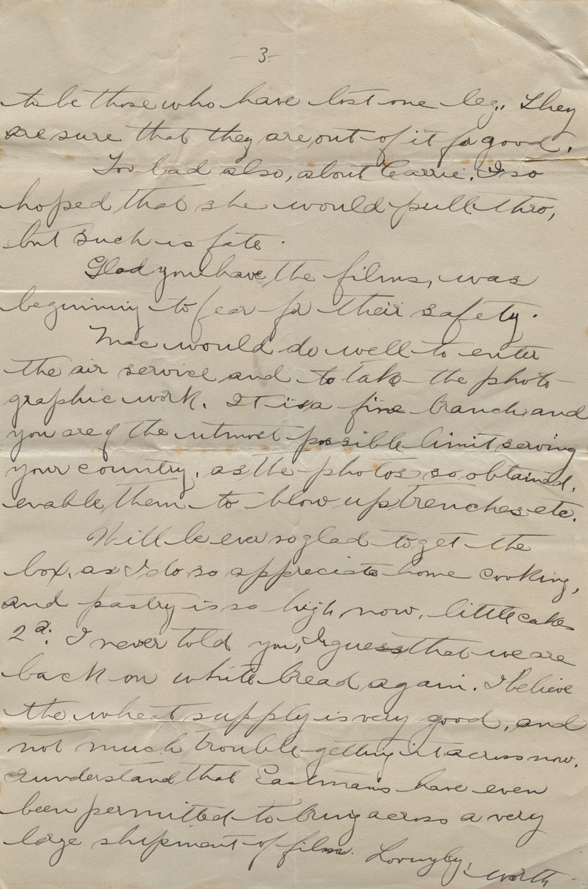 3-
to be those who have lost one leg. They
are sure that they are out of it for good.
Too bad also, about Carrie. I so
hoped that she would pull thro,
but such is fate.
Glad you have the films, was
beginning to fear for their safety.
Mac would do well to enter
the air service and to take the photo-
graphic work. It is a fine branch and
you are of the utmost possible limit serving
your country, as the photos so obtained,
enable them to blow up trenches etc.
Will be ever so glad to get the
box, as I do so appreciate home cooking,
and pastry is so high now, little cakes
2d. I never told you, I guess that we are
back on white bread again. I believe
the wheat supply is very good, and
not much trouble getting it across now.
I understand that Eastmans have even
been permitted to bring across a very
large shipment of film. Lovingly,
Worth